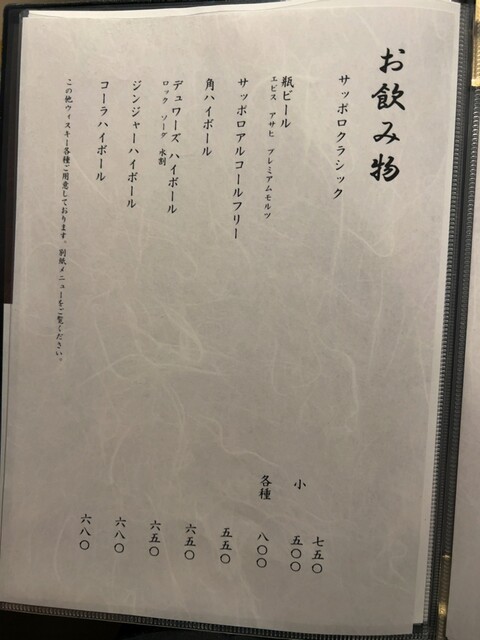 お飲み物
サッポロクラシック 七五〇
小 五〇〇
瓶ビール 各種 八〇〇
エビス アサヒ プレミアムモルツ
サッポロアルコールフリー 五五〇
角ハイボール 六五〇
デュワーズ ハイボール 六五〇
ロック ソーダ 水割
ジンジャーハイボール 六八〇
コーラハイボール 六八〇
この他ウィスキー各種ご用意しております。別紙メニューをご覧ください。